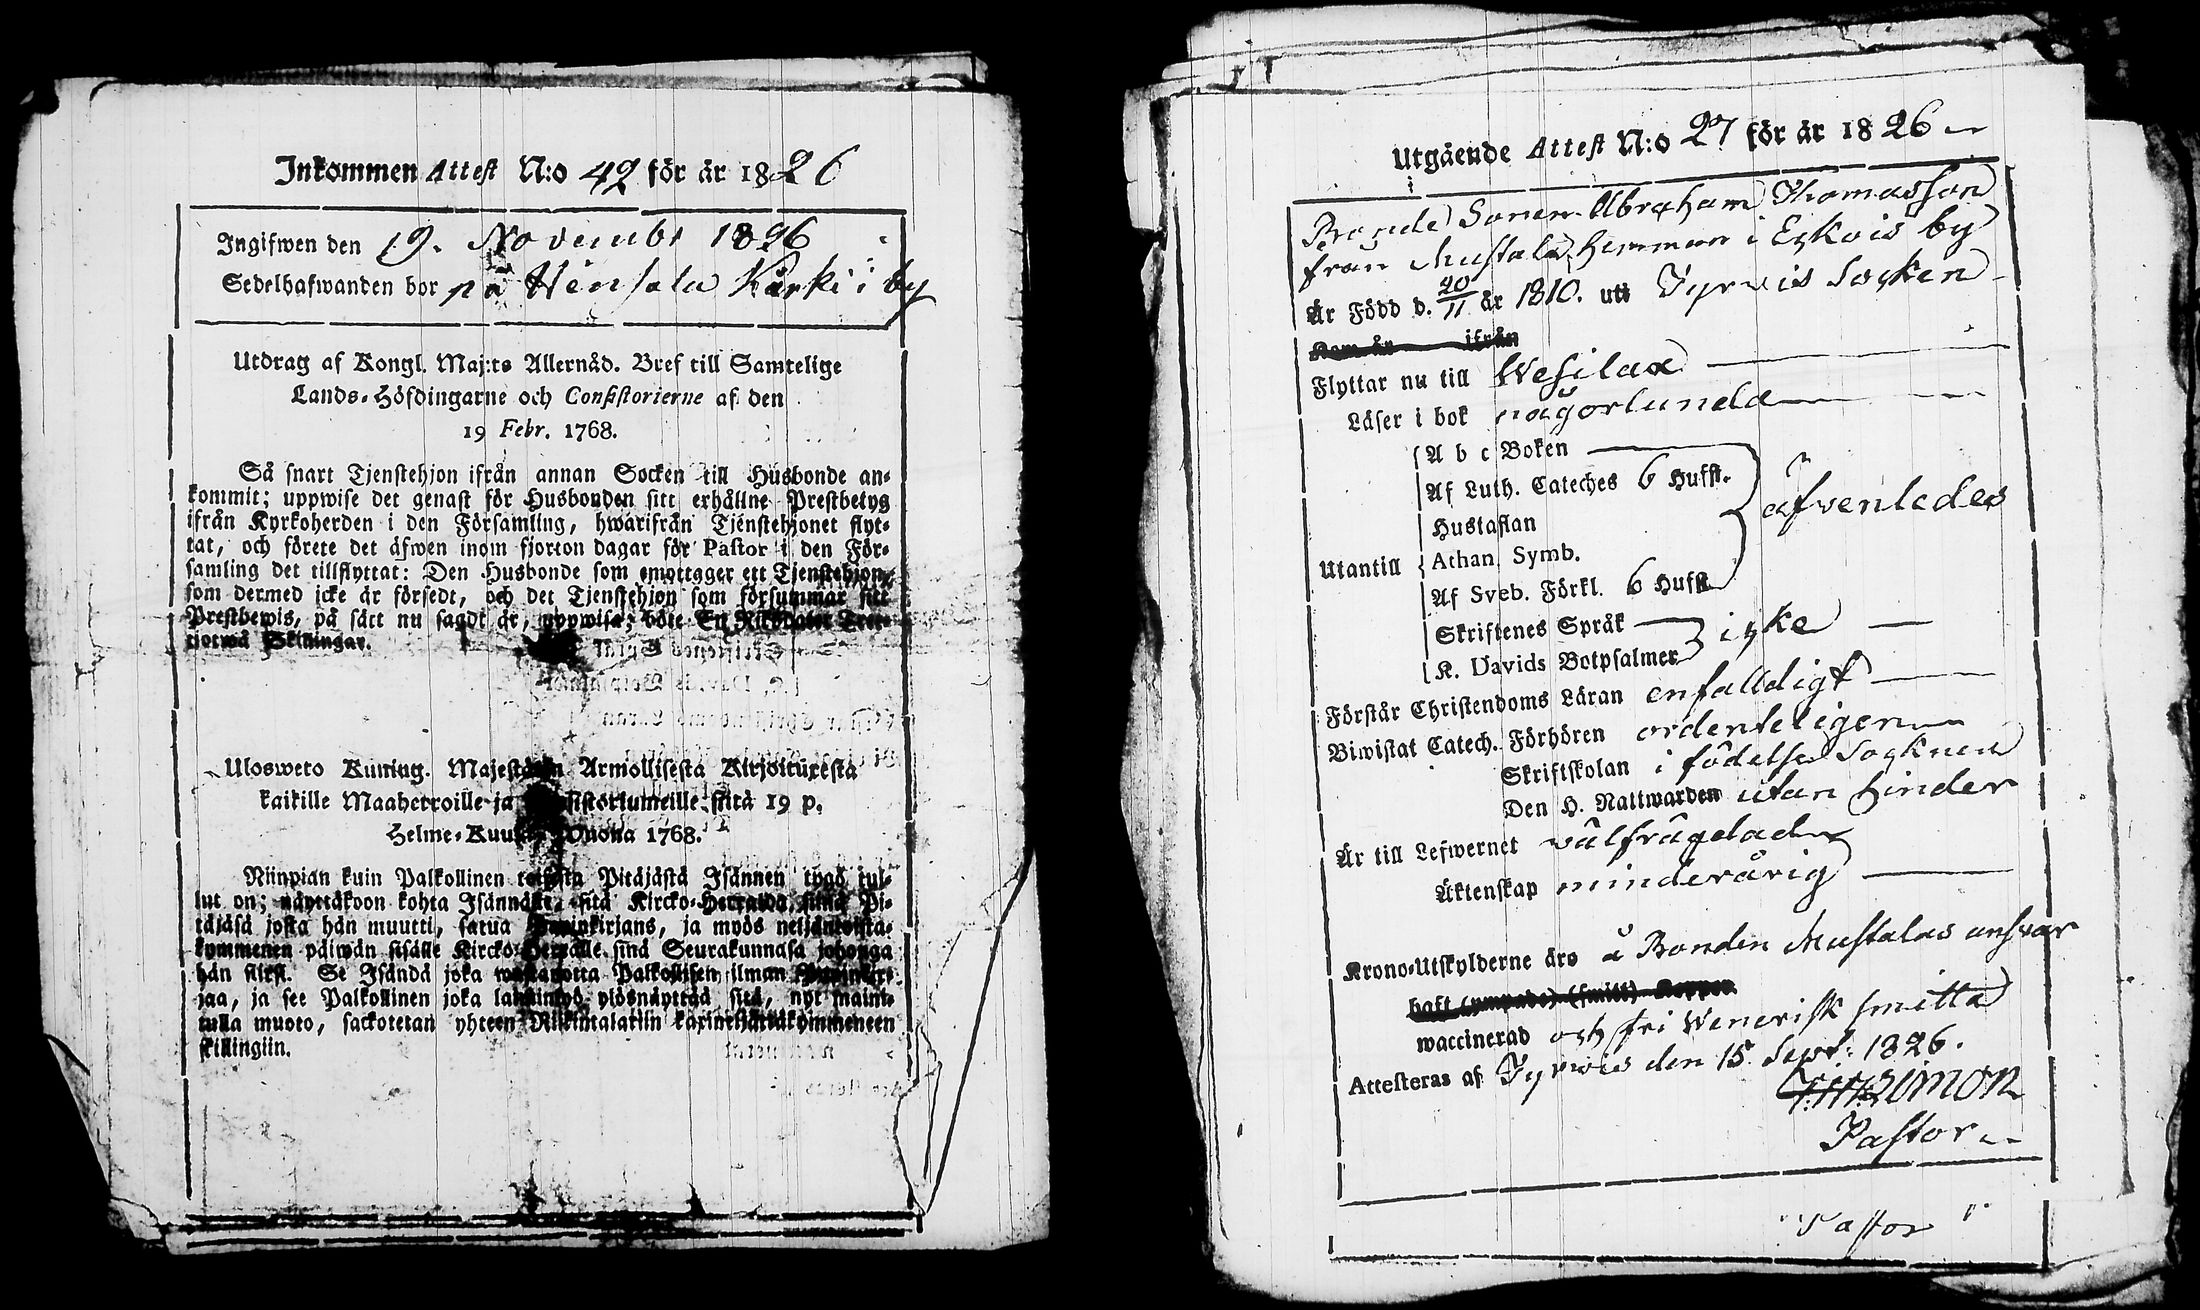 Inkommen Attest N:o 42 för år 1826
Ingifwen den 19. Novembr 1826
Sedelhafwanden bor på Hensala Kärki i by
Utdrag af Kongl. Maj:ts Allernåd. Bref till Samtelige
Lands-Höfdingarne och Consistorierne af den
19 Febr. 1768.
Så snart Tjenstehjon ifrån annan Socken till Husbonde an-
kommit; uppwise det genast för Husbonden sitt erhållne Prestbetyg
ifrån Kyrkoherden i den Församling, hwarifrån Tjenstehjonet flyt-
tat, och förete det äfwen inom fjorton dagar för Pastor i den För-
samling det tillflyttat: Den Husbonde som emottager ett Tjenstehjon,
som dermed icke är försedt, och det Tjenstehjon som försummar sitt
Prestbewis, på sätt nu sagdt är, uppwisa; böte Ett Riksdaler Tret-
tiotwå Skillingar.
Ulosweto Kuning. Majestätin Armollisesta Kirjoituxesta
kaikille Maaherroille ja Consistoriumeille siitä 19 p.
Helme-Kuusa Wuona 1768.
Niinpian kuin Palkollinen toisesta Pitäjästä Isännen tygö tul-
lut on; näyttäköon kohta Isännälle, sitä Kircko-Herralda, siinä Pi-
täjäsä josta hän muutti, satua Papinkirjans, ja myös neljäntoista-
kymmenen päiwän sisälle Kircko-Herralle sinä Seurakunnasa johonga
hän siirst. Se Isändä joka wastanotta Palkollisen ilman Papinkir-
jaa, ja see Palkollinen joka laiminlyö ylösnäyttää sitä, nyt maini-
tulla muoto, sackotetan yhteen Riikintalariin kaxineljättäkymmeneen
skillingiin.
Utgående Attest N:o 27 för år 1826
Bonde Sonen Abraham Thomasson
från Mustala hemman i Eskois by
Är Född d. 20/11 år 1810. uti Tyrvis Socken
Kom år ifrån
Flyttar nu till Wesilax
Läser i bok någorlunda
A b c Boken
Af Luth. Cateches 6 Hufst.
Hustaflan
Utantill Athan. Symb. äfvenledes
Af Sveb. Förkl. 6 Hufst.
Skriftenes Språk
K. Davids Botpsalmer icke
Förstår Christendoms Läran enfalldigt
Biwistat Catech. Förhören ordenteligen
Skriftskolan i födelse Socknen
Den H. Nattwarden utan hinder
Är till Lefwernet välfrägdad
Äktenskap minderårig
Krono-Utskylderne äro å Bonden Mustalas answar
haft (ympade) (smitt) Koppor
waccinerad och fri Wenerisk smitta
Attesteras af Tyrwis den 15 Sept: 1826.
Pastor
Pastor